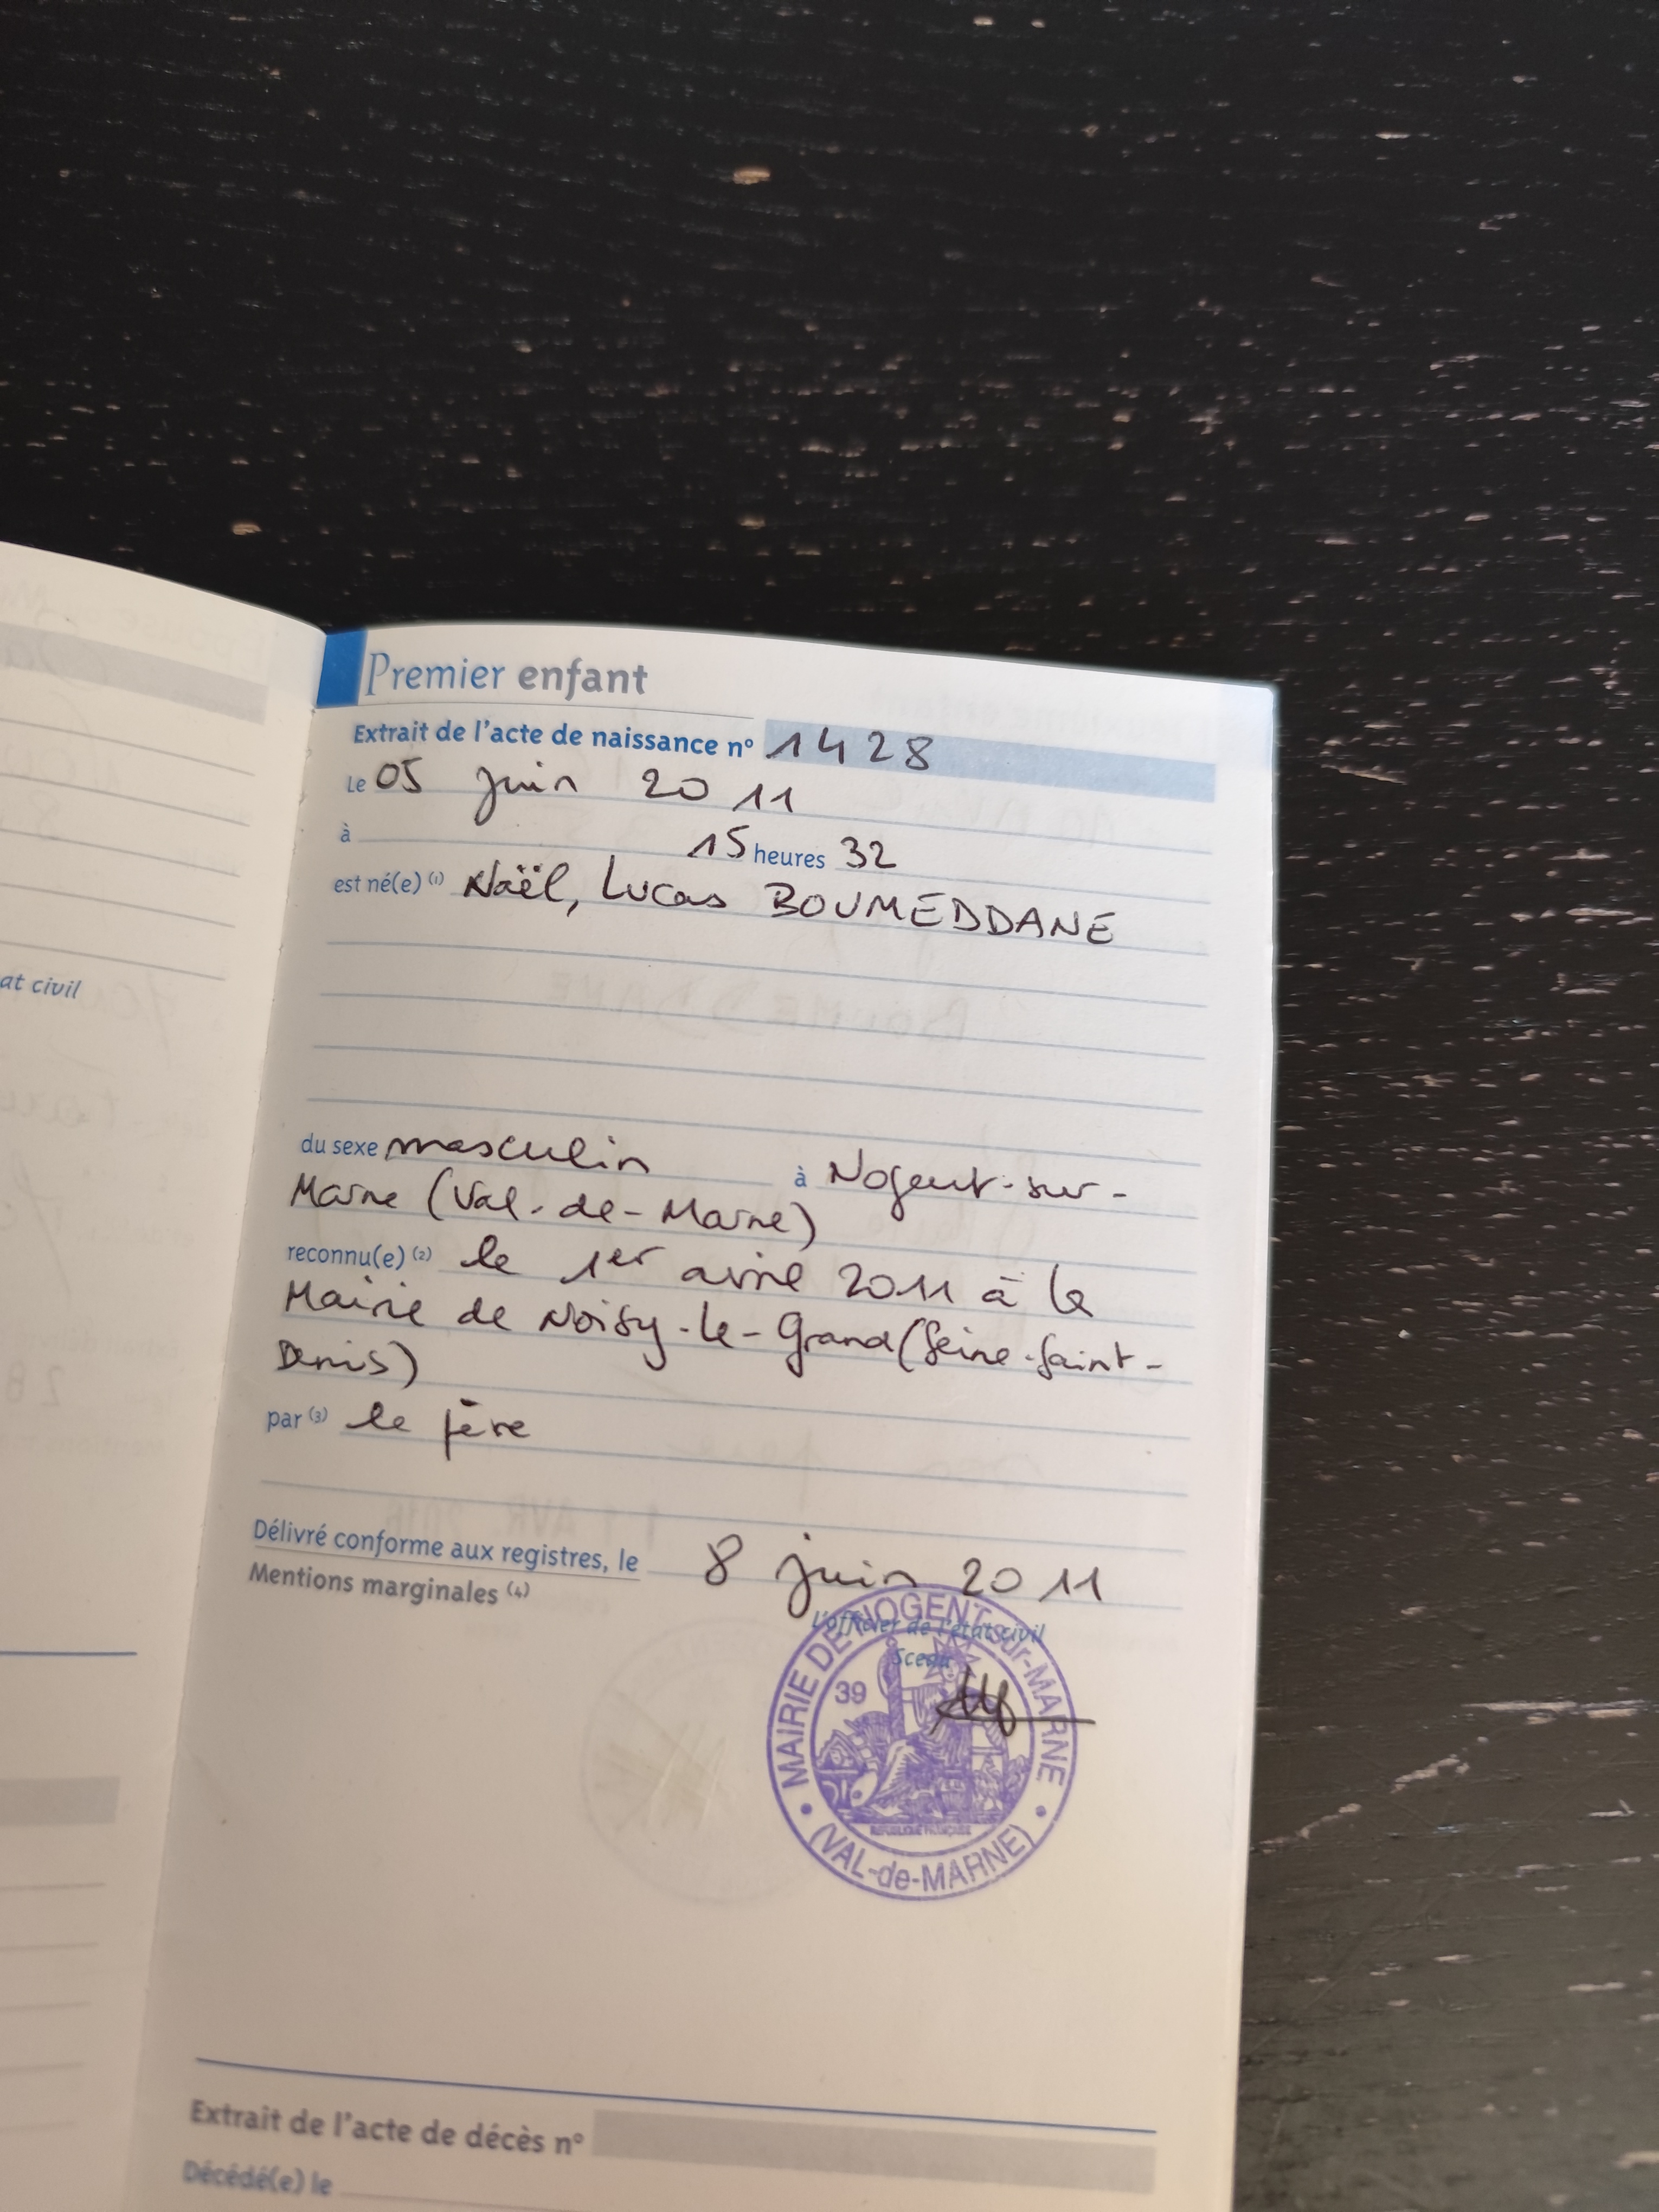 Premier enfant
Extrait de l'acte de naissance n° 1428
Le 05 juin 2011
à 15 heures 32
est né(e) (1) Naël, Lucas BOUMEDDANE
at civil
du sexe masculin à Nogent-sur-
Marne (Val-de-Marne)
reconnu(e) (2) le 1er avril 2011 à la
Mairie de Noisy-le-Grand (Seine-Saint-
Denis)
par (3) le père
Délivré conforme aux registres, le 8 juin 2011
Mentions marginales (4)
L'officier de l'état civil
Sceau
MAIRIE DE NOGENT-sur-MARNE
39
REPUBLIQUE FRANÇAISE
(VAL-de-MARNE)
Extrait de l'acte de décès n°
Décédé(e) le